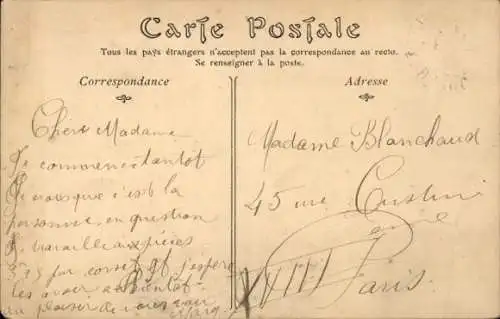 Carte Postale
Tous les pays étrangers n'acceptent pas la correspondance au recto.
Se renseigner à la poste.
Correspondance
Adresse
Chère Madame
Je commence tantot
Je crois que c'est la
personne en question
Je travaille aux pièces
3.75 par corset 9f j'espère
les avoir
au plaisir de vous voir
Madame Blanchaud
45 rue Custine
XVIII
Paris.